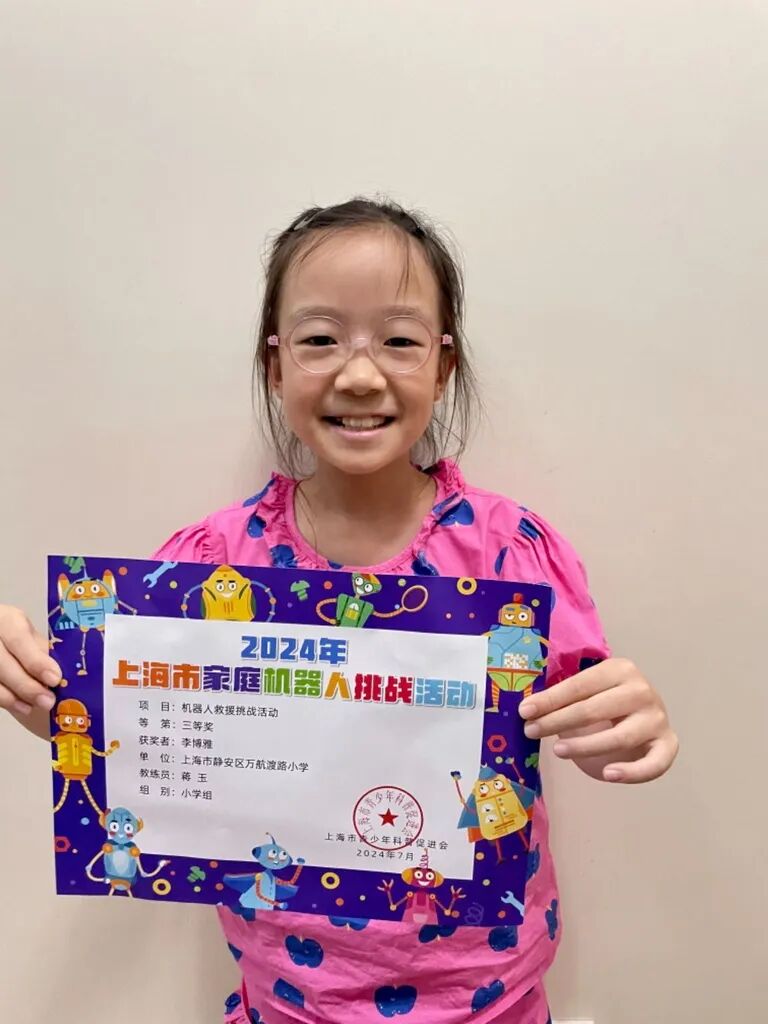 2024年
上海市家庭机器人挑战活动
项 目：机器人救援挑战活动
等 第：三等奖
获奖者：李博雅
单 位：上海市静安区万航渡路小学
教练员：蒋 玉
组 别：小学组
上海市青少年科普促进会
上海市青少年科普促进会
2024年7月